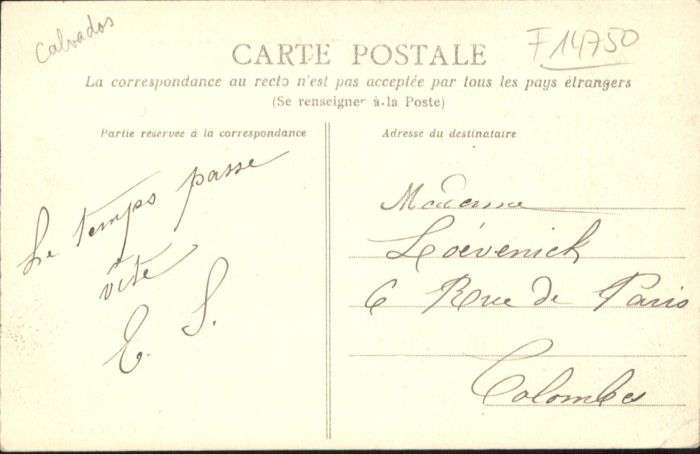 Calvados
F 14750
CARTE POSTALE
La correspondance au recto n'est pas acceptée par tous les pays étrangers
(Se renseigner à la Poste)
Partie réservée à la correspondance
Le temps passe
vite
E. S.
Adresse du destinataire
Madame
Loévenick
6 Rue de Paris
Colombes